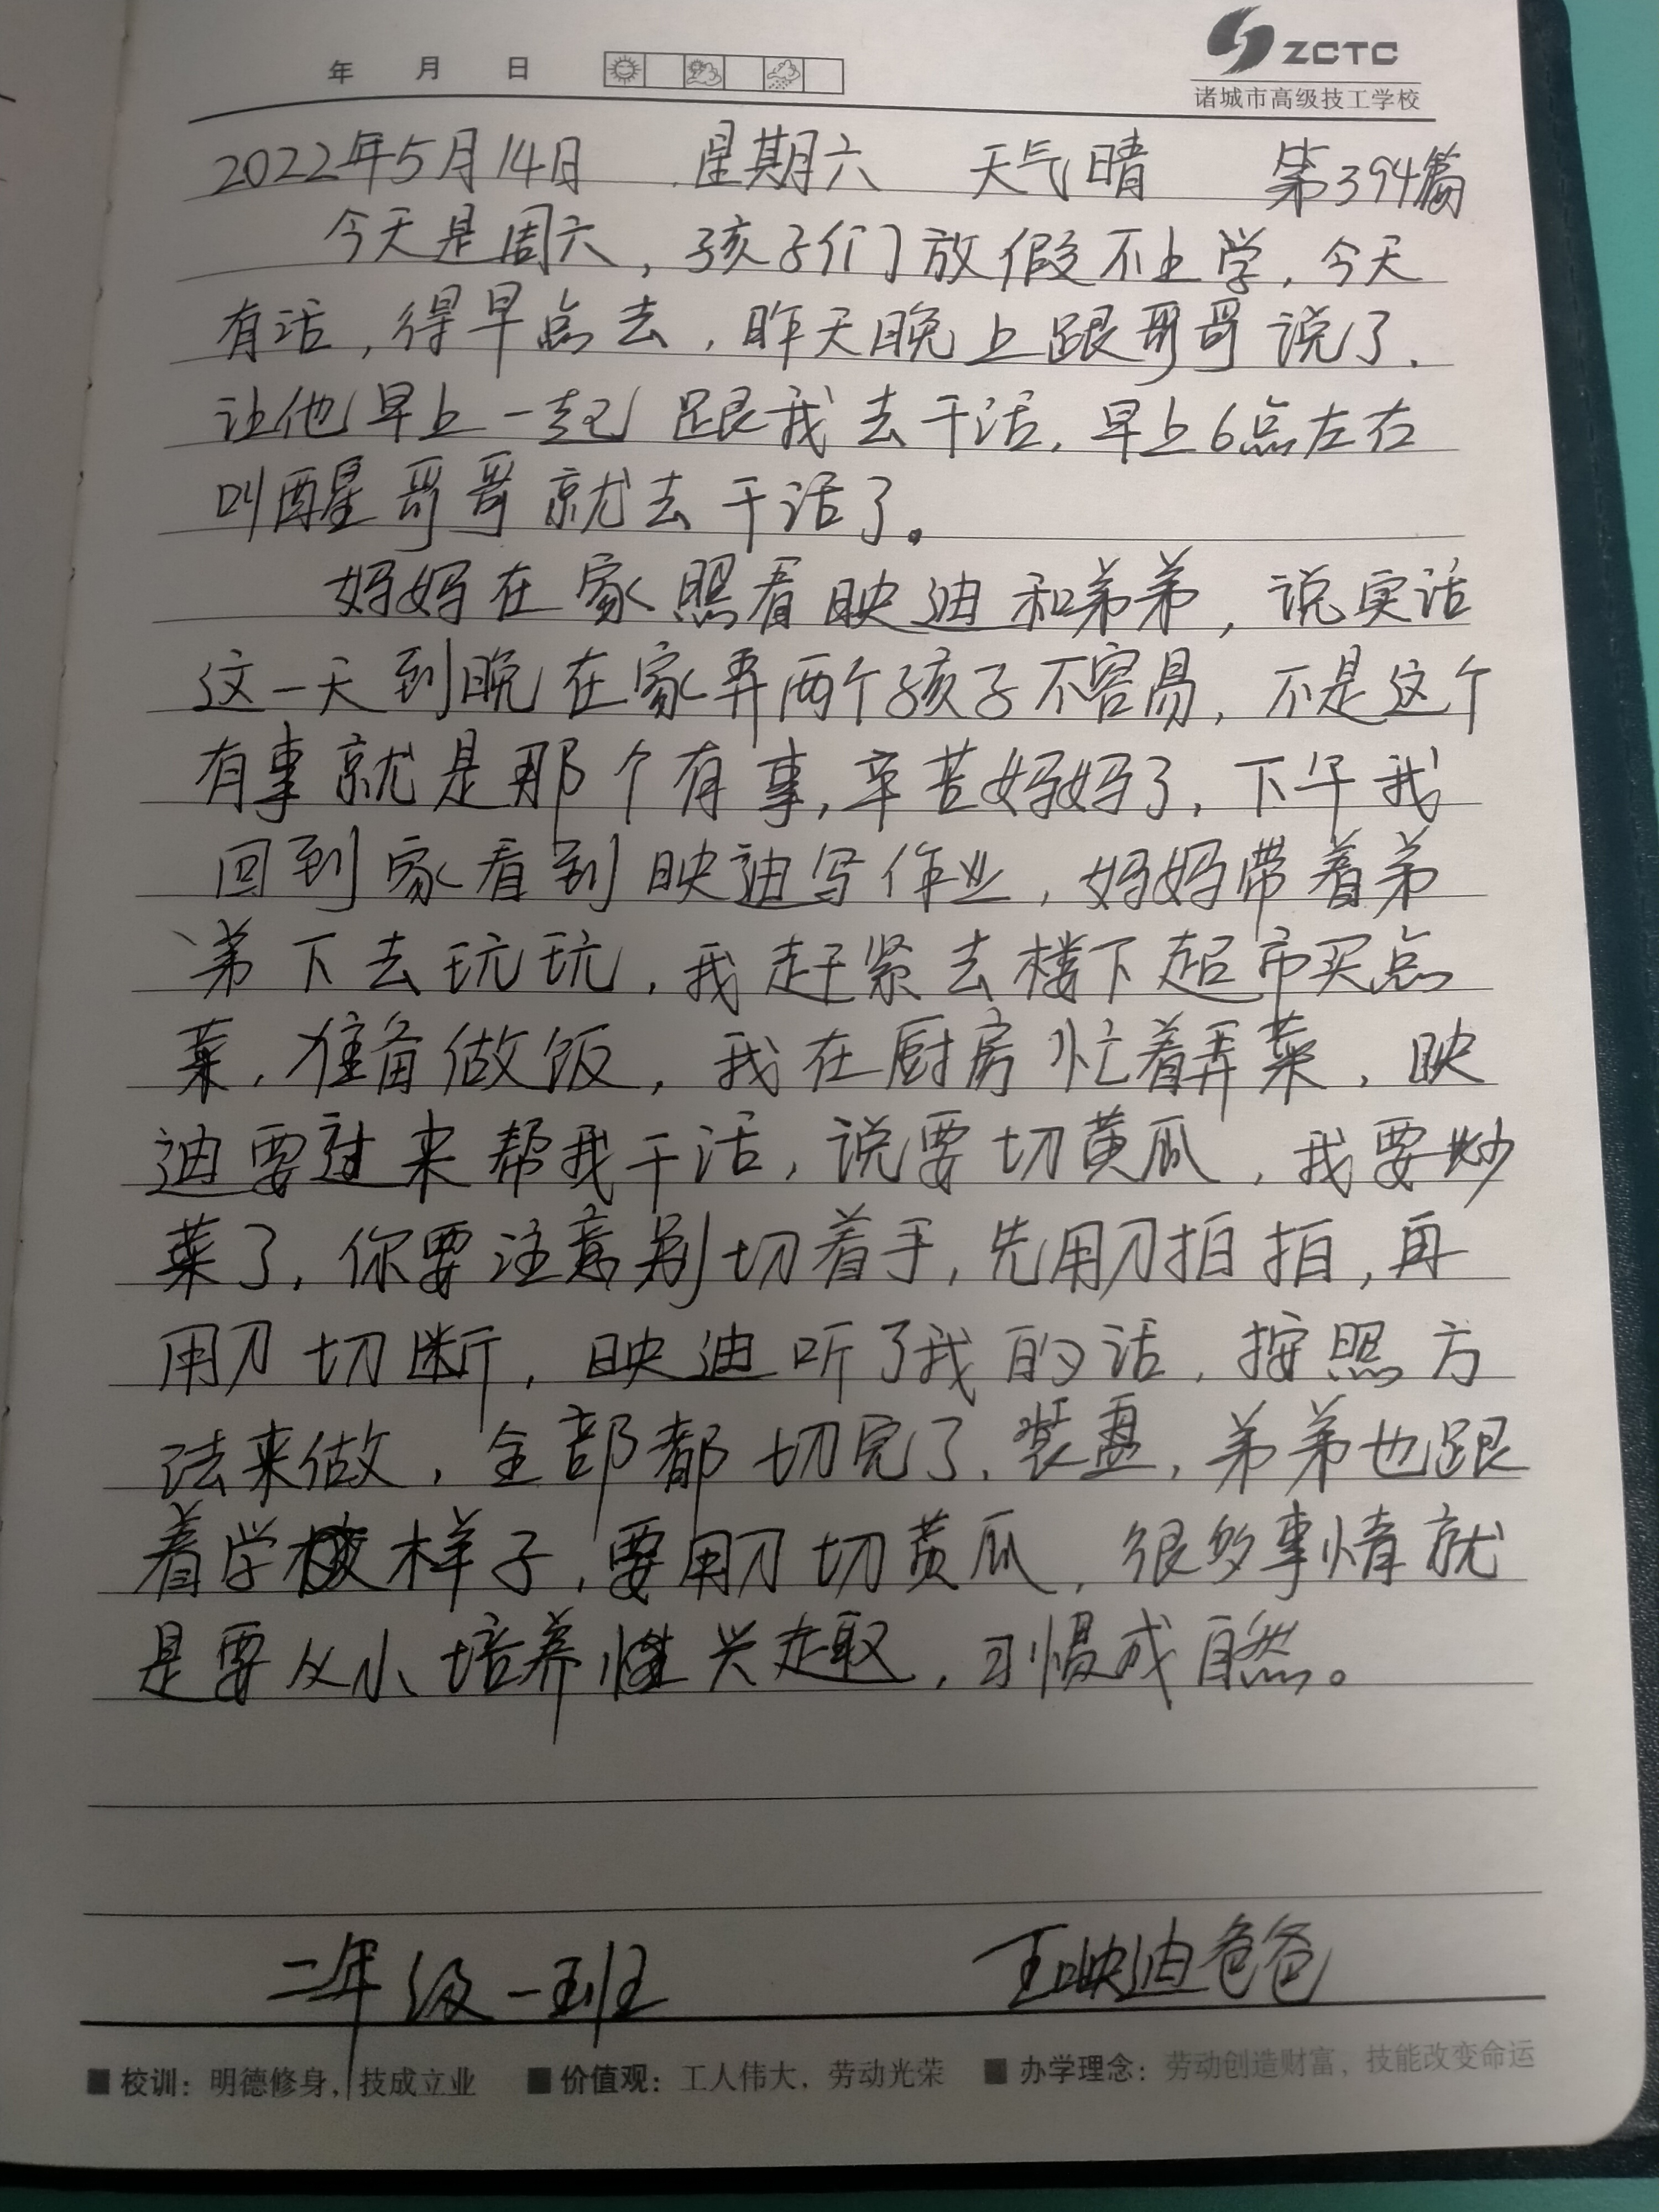 ZCTC
年 月 日
诸城市高级技工学校
2022年5月14日 星期六 天气晴 第394篇
今天是周六，孩子们放假不上学，今天
有活，得早点去，昨天晚上跟哥哥说了，
让他早上一起跟我去干活，早上6点左右
叫醒哥哥就去干活了。
妈妈在家照看映迪和弟弟，说实话
这一天到晚在家弄两个孩子不容易，不是这个
有事就是那个有事，辛苦妈妈了，下午我
回到家看到映迪写作业，妈妈带着弟
弟下去玩玩，我赶紧去楼下超市买点
菜，准备做饭，我在厨房忙着弄菜，映
迪要过来帮我干活，说要切黄瓜，我要炒
菜了，你要注意别切着手，先用刀拍拍，再
用刀切断，映迪听了我的话，按照方
法来做，全部都切完了，装盘，弟弟也跟
着学样子，要用刀切黄瓜，很多事情就
是要从小培养兴趣，习惯成自然。
二年级一班 王映迪爸爸
■校训：明德修身，技成立业 ■价值观：工人伟大，劳动光荣 ■办学理念：劳动创造财富，技能改变命运